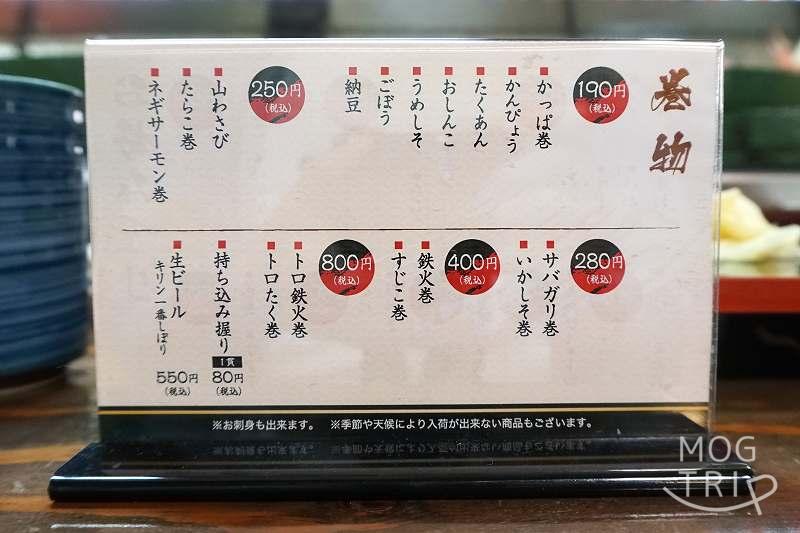 巻物
190円
(税込)
かっぱ巻
かんぴょう
たくあん
おしんこ
うめしそ
ごぼう
納豆
250円
(税込)
山わさび
たらこ巻
ネギサーモン巻
280円
(税込)
サバガリ巻
いかしそ巻
400円
(税込)
鉄火巻
すじこ巻
800円
(税込)
トロ鉄火巻
トロたく巻
持ち込み握り
1貫
80円
(税込)
生ビール
キリン一番しぼり
550円
(税込)
※お刺身も出来ます。 ※季節や天候により入荷が出来ない商品もございます。
MOG
TRIP